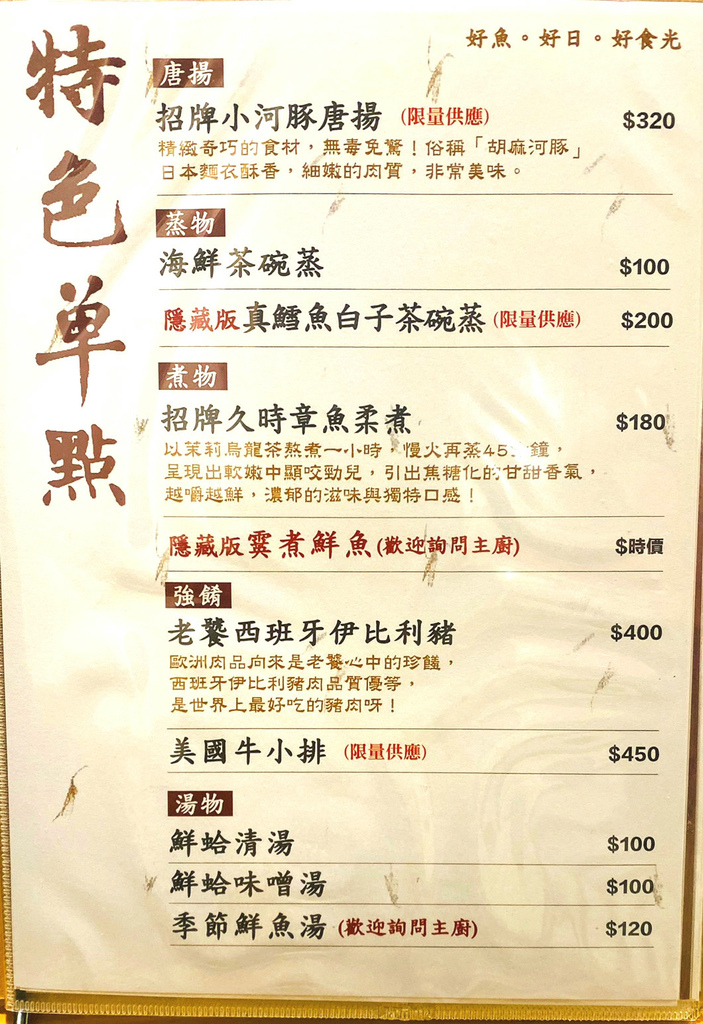 特色单點
好魚。好日。好食光
唐揚
招牌小河豚唐揚 (限量供應) $320
精緻奇巧的食材，無毒免驚！俗稱「胡麻河豚」
日本麵衣酥香，細嫩的肉質，非常美味。
蒸物
海鮮茶碗蒸 $100
隱藏版真鱈魚白子茶碗蒸(限量供應) $200
煮物
招牌久時章魚柔煮 $180
以茉莉烏龍茶熬煮一小時，慢火再蒸45分鐘，
呈現出軟嫩中顯咬勁兒，引出焦糖化的甘甜香氣，
越嚼越鮮，濃郁的滋味與獨特口感！
隱藏版霙煮鮮魚(歡迎詢問主廚) $時價
強餚
老饕西班牙伊比利豬 $400
歐洲肉品向來是老饕心中的珍饈，
西班牙伊比利豬肉品質優等，
是世界上最好吃的豬肉呀！
美國牛小排 (限量供應) $450
湯物
鮮蛤清湯 $100
鮮蛤味噌湯 $100
季節鮮魚湯 (歡迎詢問主廚) $120